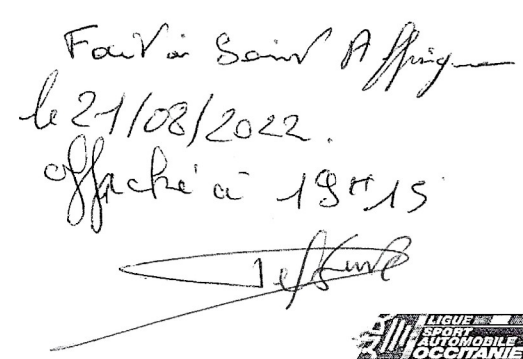 Fait à Saint Affrique
le 21/08/2022.
affiché à 19H15
LIGUE
SPORT
AUTOMOBILE
OCCITANIE